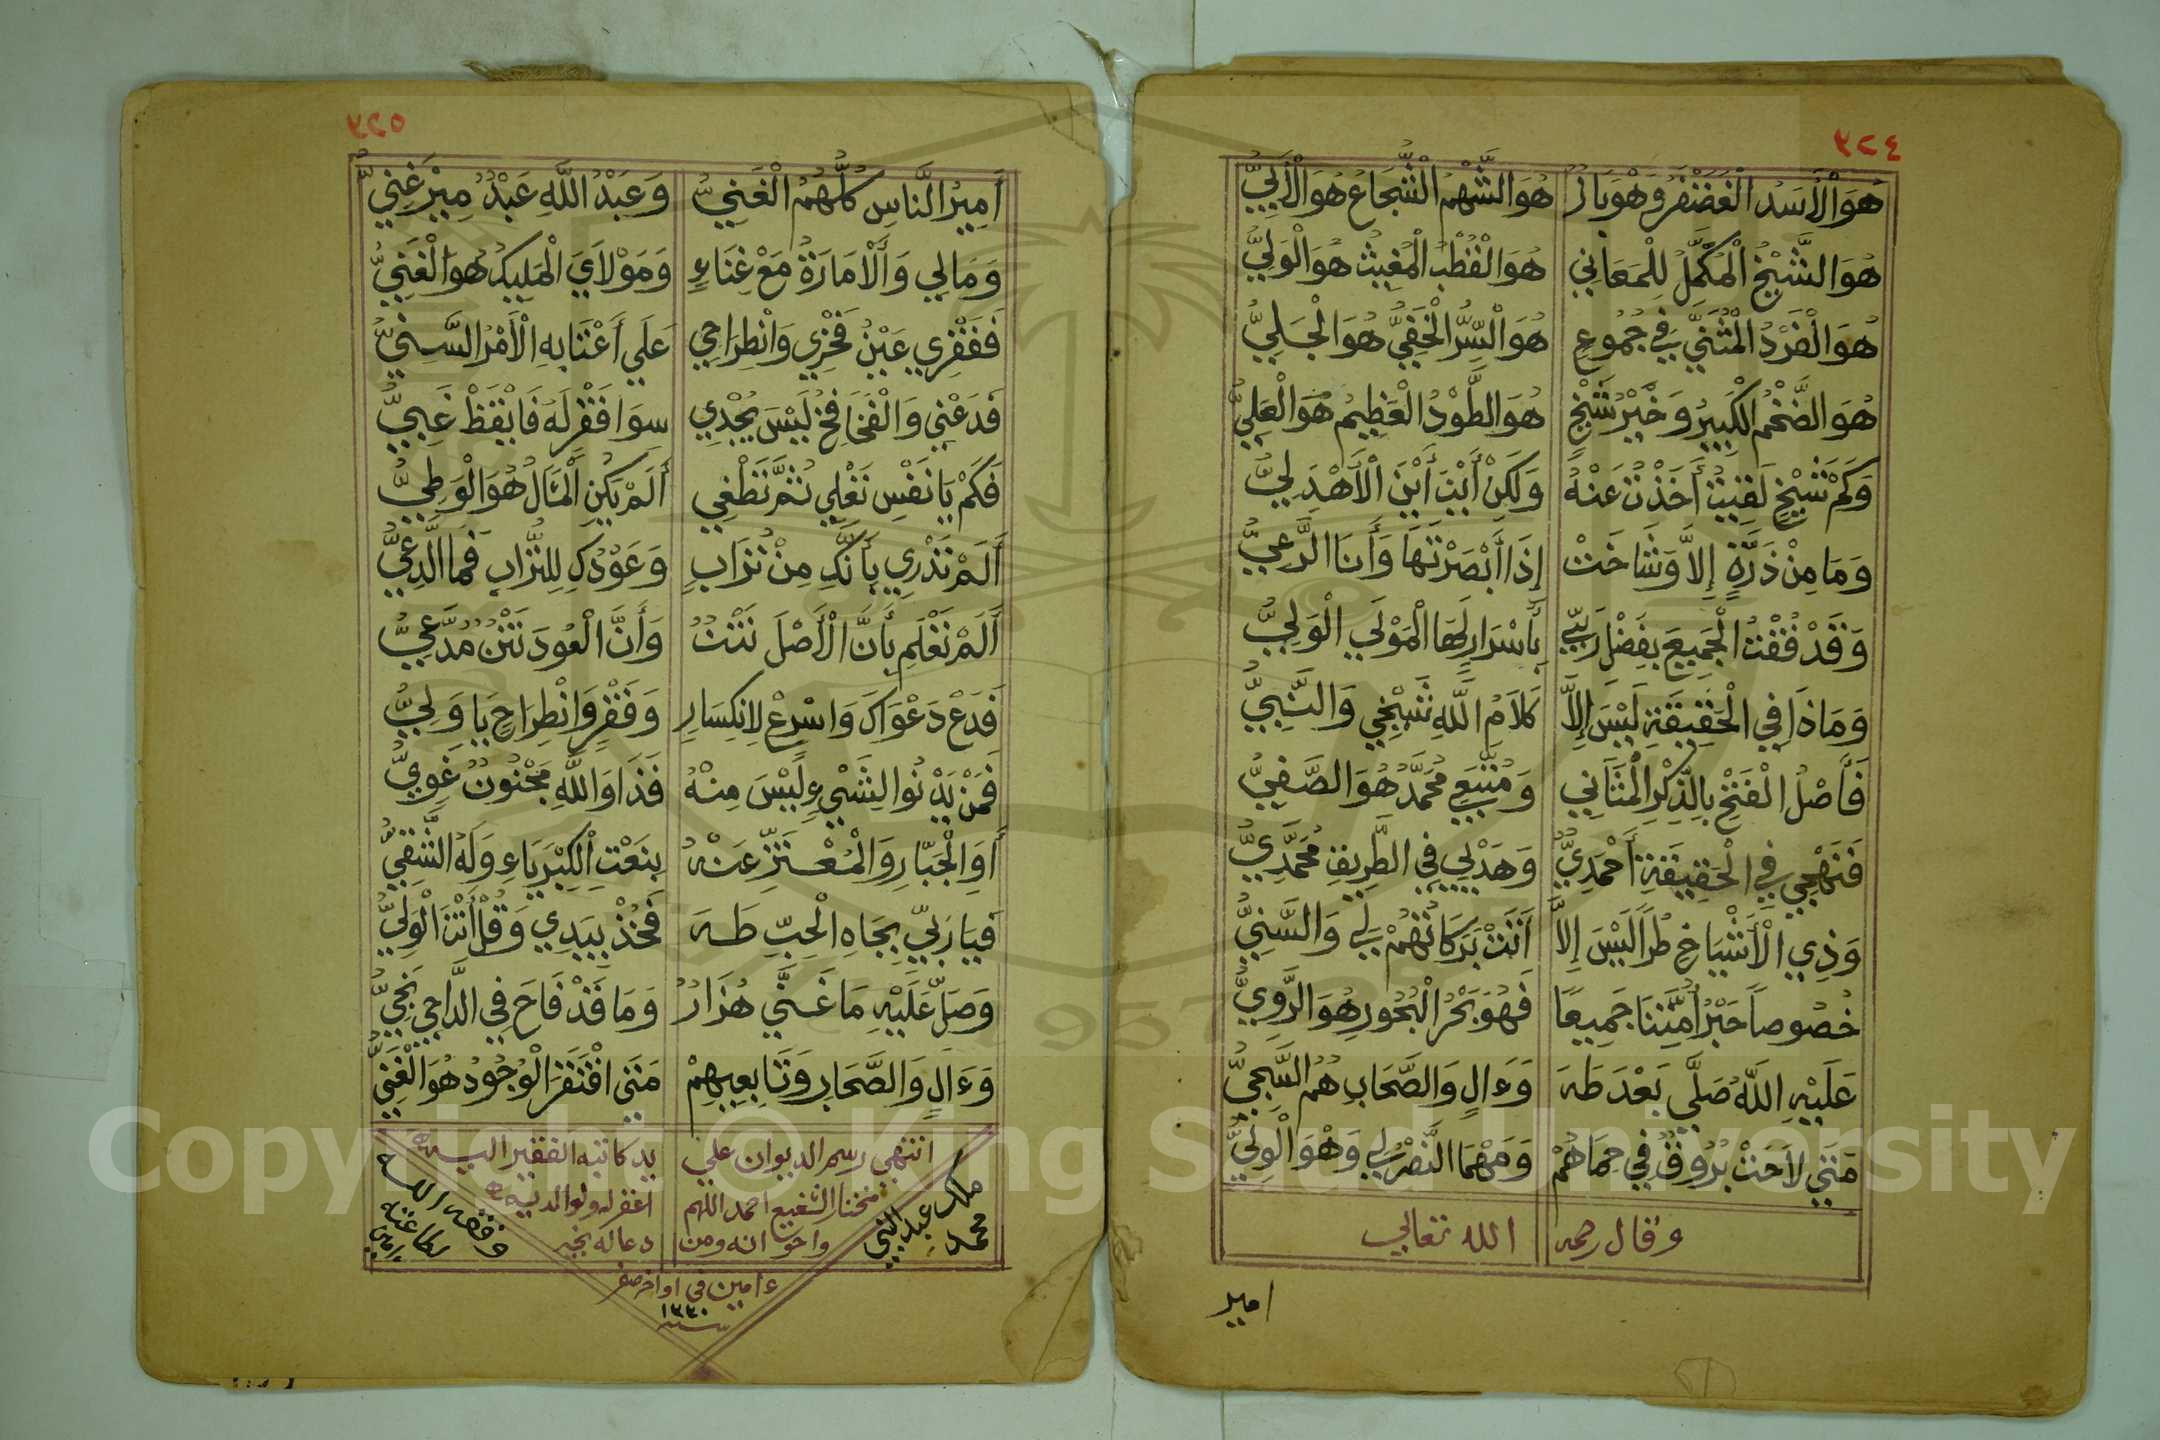 ٣٢٤
هُوَ الْأَسَدُ الْغَضَنْفَرُ وَهْوَ بَازُ هُوَ الشَّهْمُ الشُّجَاعُ هُوَ الْأَبِيُّ
هُوَ الشَّيْخُ الْمُكَمَّلُ لِلْمَعَانِي هُوَ الْقُطْبُ الْمُغِيثُ هُوَ الْوَلِيُّ
هُوَ الْفَرْدُ الْمُثَنَّى فِي جُمُوعِ هُوَ السِّرُّ الْخَفِيُّ هُوَ الْجَلِيُّ
هُوَ الضَّخْمُ الْكَبِيرُ وَخَيْرُ شَيْخٍ هُوَ الطَّوْدُ الْعَظِيمُ هُوَ الْعَلِيُّ
وَكَمْ شَيْخٍ لَقِيتُ أَخَذْتُ عَنْهُ وَلَكِنْ أَيْتَ أَيْنَ الْأَهْدَلِيُّ
وَمَا مِنْ ذَرَّةٍ إِلاَّ وَشَاخَتْ إِذَا أَبْصَرْتَهَا وَأَنَا الرَّعِيُّ
وَقَدْ فُقْتُ الْجَمِيعَ بِفَضْلِ رَبِّي بِأَسْرَارٍ لَهَا الْمَوْلَي الْوَلِيُّ
وَمَاذَا فِي الْحَقِيقَةِ لَيْسَ إِلاَّ كَلاَمُ اللَّهِ شَيْخِي وَالنَّبِيُّ
فَأَصْلُ الْفَتْحِ بِالذِّكْرِ الْمَثَانِي وَمُتَّبَعِي مُحَمَّدُ هُوَ الصَّفِيُّ
فَنَهْجِي فِي الْحَقِيقَةِ أَحْمَدِيُّ وَهَدْيِي فِي الطَّرِيقِ مُحَمَّدِيُّ
وَذِي الْأَشْيَاخِ طُرًا لَيْسَ إِلاَّ أَتَتْ بَرَكَاتُهُمْ لِي وَالسَّنِيُّ
خُصُوصاً حَبْرُ أُمَّتِنَا جَمِيعًا فَهُوَ بَحْرُ الْبُحُورِ هُوَ الرَّوِيُّ
عَلَيْهِ اللَّهُ صَلَّي بَعْدَ طَهَ وَءَالٍ وَالصَّحَابِ هُمُ السَّجِيُّ
مَتَي لاَحَتْ بُرُوقٌ فِي حِمَاهُمْ وَمَهْمَا النَّصْرُ لِي وَهْوَ الْوَلِيُّ
وقال رحمه الله تعالي
امير
٣٢٥
أَمِيرُ النَّاسِ كُلُّهُمُ الْغَنِيُّ وَعَبْدُ اللَّهِ عَبْدُ مِيرْغَنِيُّ
وَمَالِي وَالْأَمَارَةُ مَعْ غِنَاءٍ وَمَوْلاَيَ الْمَلِيكُ هُوَ الْغَنِيُّ
فَفَقْرِي عَيْنُ فَخْرِي وَانْطِرَاحِي عَلَي أَعْتَابِهِ الْأَمْرُ السَّنِيُّ
فَدَعْنِي وَالْفَخَافِخُ لَيْسَ يُجْدِي سِوَا فَقْرٍ لَهُ فَايْقَظْ غَبِيُّ
فَكَمْ يَا نَفْسِ تَعْلِي ثُمَّ تَطْغِي أَلَمْ يَكُنِ الْمَآلُ هُوَ الْوَطِيُّ
أَلَمْ تَدْرِي بِأَنَّكِ مِنْ تُرَابٍ وَعَوْدُكِ لِلتُّرَابِ فَمَا الدَّعِيُّ
أَلَمْ تَعْلَمِ بِأَنَّ الْأَصْلَ نَتْنٌ وَأَنَّ الْعَوْدَ نَتْنٌ مُدَّعِيُّ
فَدَعْ دَعْوَاكَ وَاسْرِعْ لِانْكِسَارٍ وَفَقْرٍ وَانْطِرَاحٍ يَا وَلِيُّ
فَمَنْ يَدْنُوا لِشَيْءٍ لَيْسَ مِنْهُ فَذَا وَاللَّهِ مَجْنُونٌ غَوِيُّ
أَوِ الْجَبَّارِ وَالْمُعْتَزِّ عَنْهُ بِنَعْتِ الْكِبْرِيَاءِ وَلَهُ الشَّقِيُّ
فَيَا رَبِّي بِجَاهِ الْحِبِّ طَهَ فَخُذْ بِيَدِي وَقُلْ أَنْتَ الْوَلِيُّ
وَصَلِّ عَلَيْهِ مَا غَنَّى هُزَارٌ وَمَا قَدْ فَاحَ فِي الدَّاجِي نَجِيُّ
وَءَالٍ وَالصَّحَابِ وَتَابِعِيهِمْ مَتَى افْتَقَرَ الْوُجُودُ هُوَ الْغَنِيُّ
انتهي رسم الديوان علي يد كاتبه الفقير اليه
مختار الشفيع احمد اللهم اغفر له ولوالديه
واخوانه ومن دعا له بخير
ءامين في اواخر صفر
سنة ١٣٣٠
ملك عبد النبي
محمد